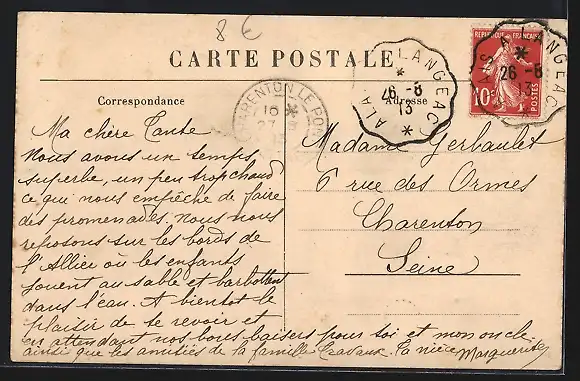 8 €
CARTE POSTALE
Correspondance
Adresse
CHARENTON LE PONT
16
27
LANGEAC
26 -6
13
A LA
REPUBLIQUE FRANÇAISE
10c
POSTES
LANGEAC
26 -6
13
Ma chère Tante
Nous avons un temps
superbe, un peu trop chaud
ce qui nous empêche de faire
des promenades. Nous nous
reposons sur les bords de
l'Allier où les enfants
jouent au sable et barbottent
dans l'eau. A bientôt le
plaisir de te revoir et
en attendant nos bons baisers pour toi et mon oncle
ainsi que les amitiés de la famille Travaux. Ta nièce Marguerite
Madame Gerbault
6 rue des Ormes
Charenton
Seine